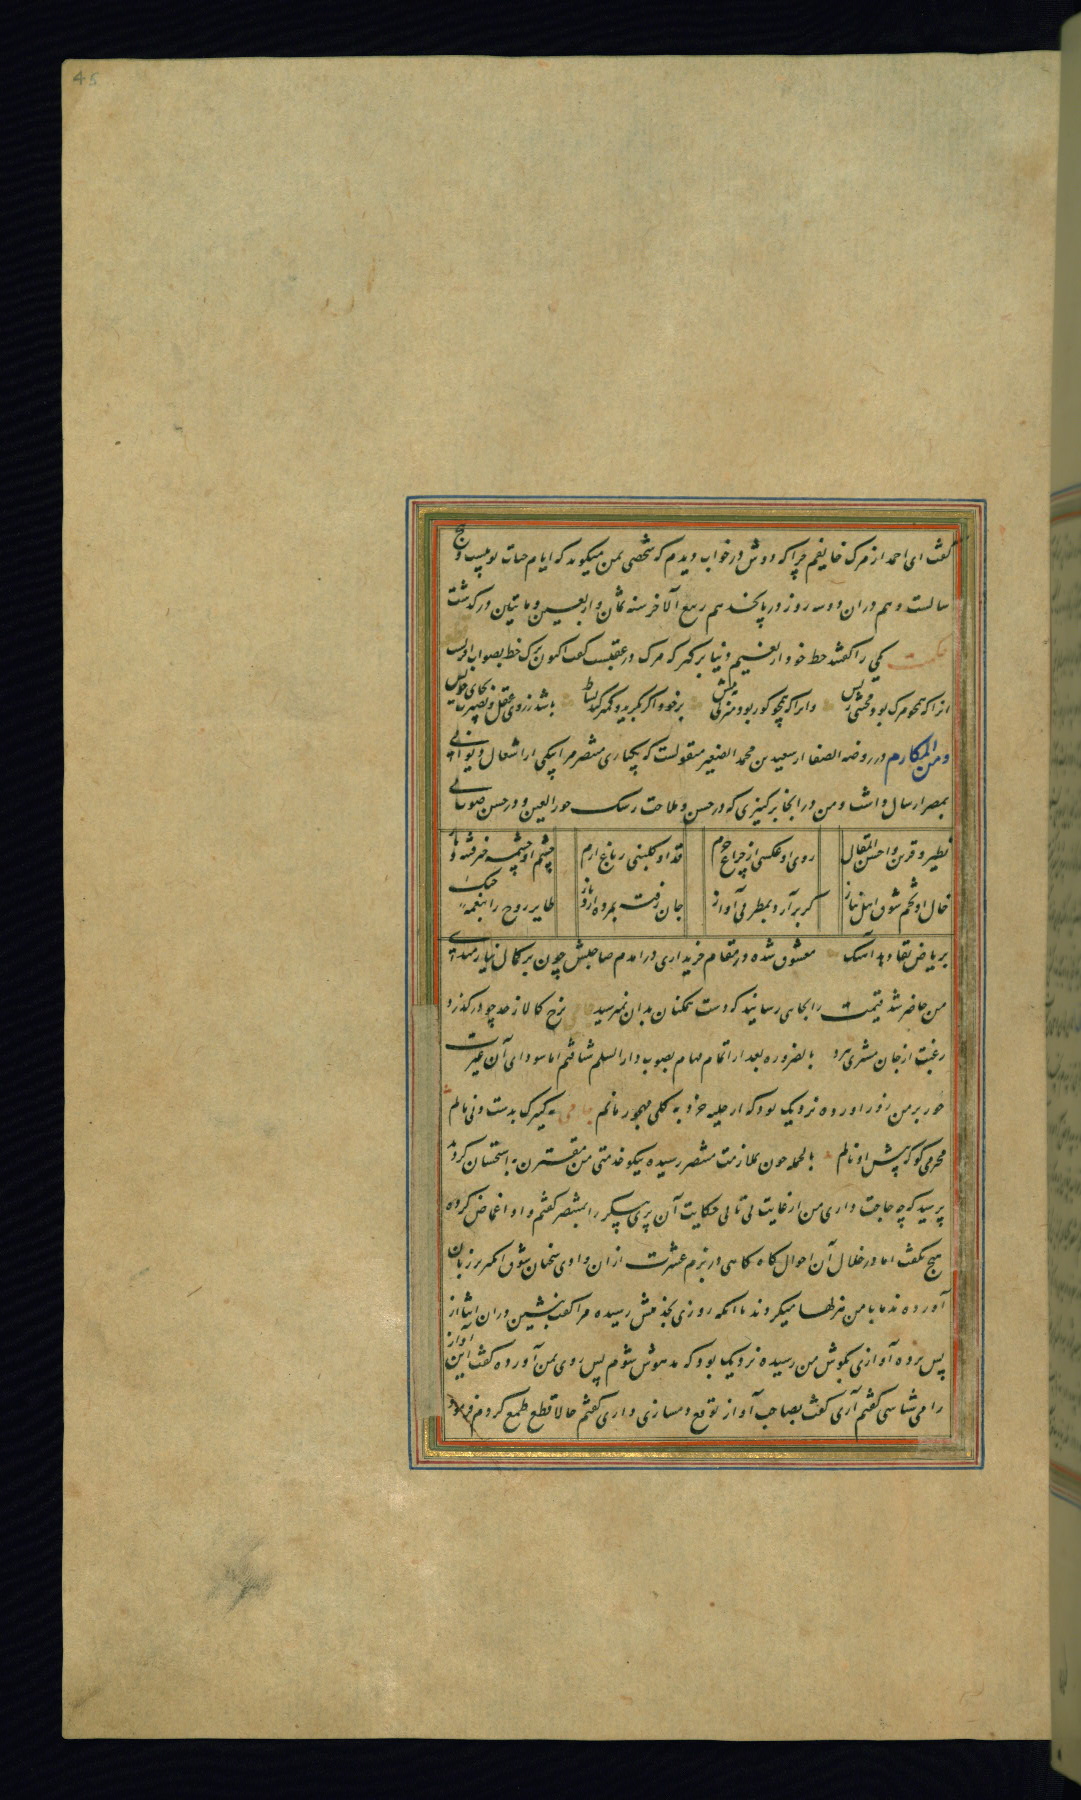 45
گفت ای احمد از مرگ خایفم چرا که دوش در خواب دیدم که شخصی بمن میگوید که ایام حیات تو بیست و پنج
سالست و هم دران دو سه روز در پانجدهم ربیع الآخر سنه ثمان و اربعین و ماتین درگذشت
حکمت یکی را گفتند حظ خود از نعیم دنیا برگیر که مرگ در عقبست گفت اکنون ترک حظ بصواب اقربست
انرا که همچو مرگ بود در پس وانرا که همچو گور بود منزلی بپیش برخود اگر بگرید و کمتر کند نشاط باشد ز روی عقل بجای خویش
ومن المکارم در روضه الصفا از سعید بن محمد الصغیر منقولست که یکباری منتصر مرا بیکی از اشغال دیوانی
بمصر ارسال داشت و من در انجا بر کنیزی که در حسن و ملاحت رشک حور العین و در حسن صوت بی
نظیر و قرین و احسن المقال روی او عکسی از چراغ حرم قد او گلبنی ز باغ ارم چشم او چشمه
خال او تخم شوق اهل نیاز گر برآرد بمطربی آواز جان رفته بمرده آرد باز طایر روح را بنغمه چنگ
بریاض بقا دهد آهنگ معشوق شده در مقام خریداری درامدم صاحبش چون بر کمال نیازمندی
من حاضر شد قیمت را بجایی رسانید که دست تمکنان بدان نمیرسید نرخ کالا ز حد چو درگذرد
رغبت از جان مشتری ببرد بالضروره بعد از اتمام مهام بصوب دار السلم شتافتم اما سودای آن غیرت
حور بر من زور اورده نزدیک بود که از حلیه خرد به کلی مهجور مانم نه گیرک بدست ونی مالم
محرمی کو که پیش او نالم بالجمله چون بملازمت منتصر رسیده نیکو خدمتی من مقترن باستحسان کردید
پرسید که چه حاجت داری من از غایت بی تابی حکایت آن پری پیکر را بمنتصر گفتم و او اغماض کرده
هیچ نگفت اما در خلال آن احوال گاه گاهی در بزم عشرت ازان وادی سخنان شوق انگیز بر زبان
آورده ندما با من هزلها میکردند تا انکه روزی بخدمتش رسیده مرا گفت بنشین دران اثنا از
پس پرده آوازی بگوش من رسیده نزدیک بود که مدهوش شوم پس روی بمن آورده گفت این آواز
را می شناسی گفتم آری گفت بصاحب آواز توقع دمسازی داری گفتم حالا قطع طمع کردم فرمود